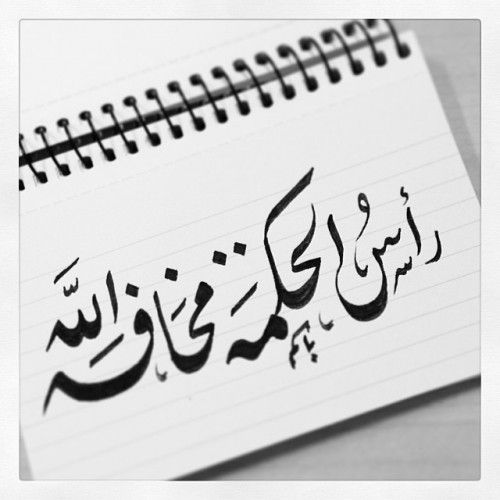 رأسُ الحكمة مخافة اللّه